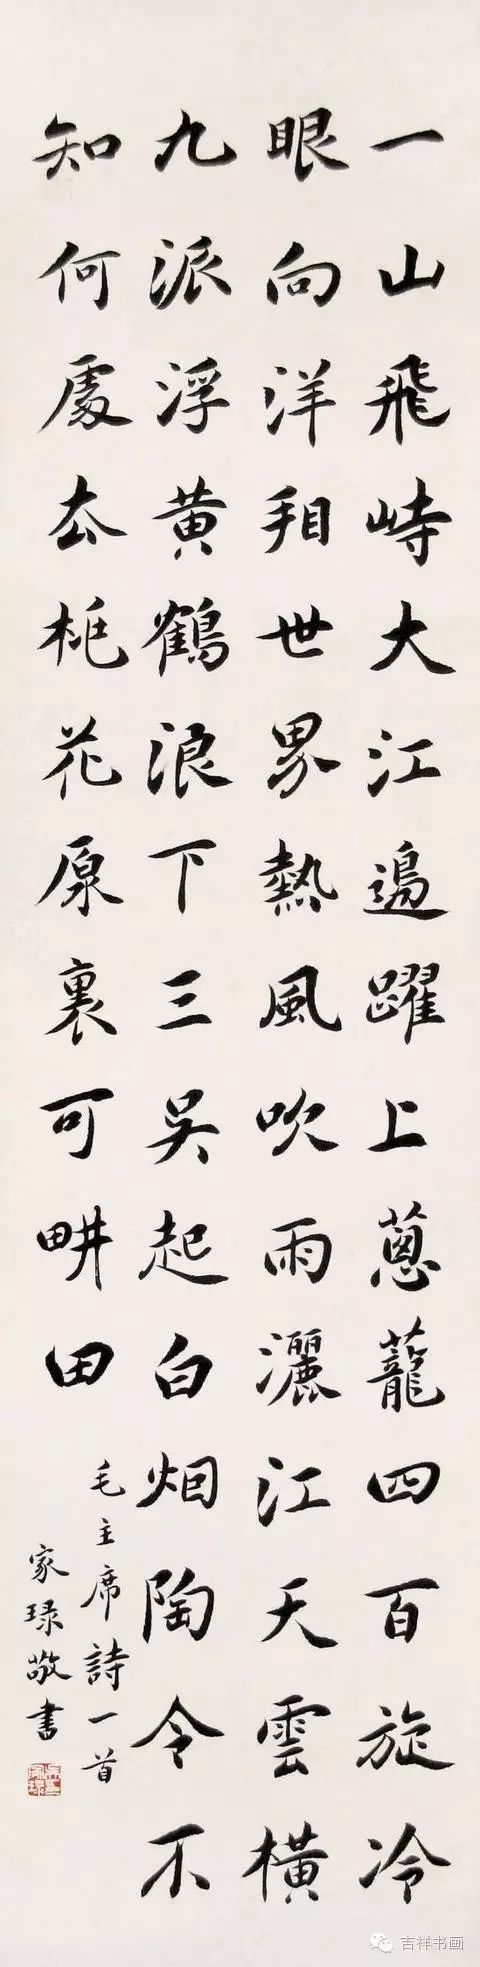 一山飛峙大江邊躍上蔥蘢四百旋冷
眼向洋看世界熱風吹雨灑江天雲橫
九派浮黃鶴浪下三吳起白烟陶令不
知何處去桃花源裏可畊田
毛主席詩一首
家琭敬書
吉祥书画